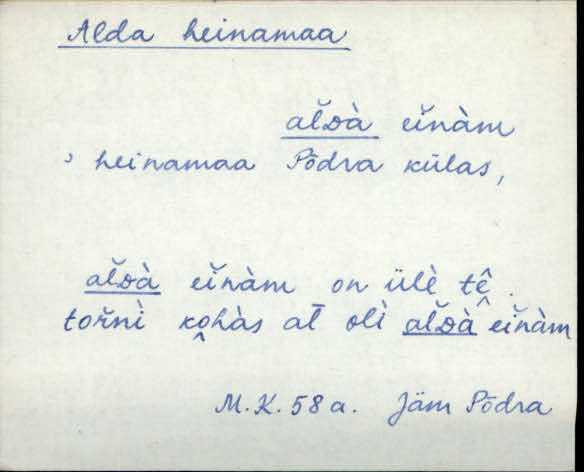 Alda heinamaa
al̆ᴅà eĭnàm
' heinamaa Põdra külas,
al̆ᴅà eĭnàm on ülè tê̬.
tor̆nì ko̭hàs al̄ olì al̆ᴅà eĭnàm
M.K. 58 a. Jäm Põdra